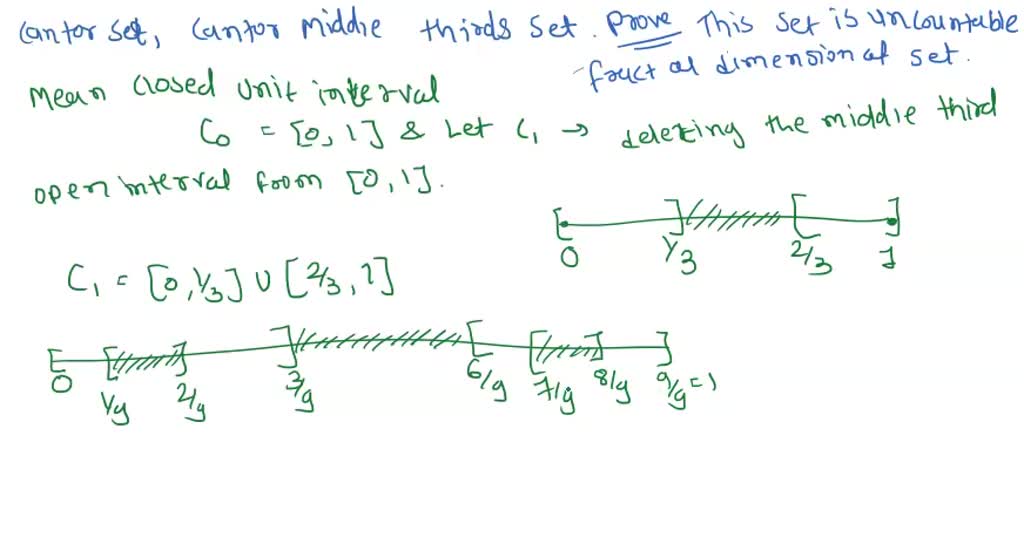 Cantor set, Cantor Middle thirds set. Prove This set is uncountable
fract al dimension of set.
Mean closed unit interval
C₀ = [0, 1] & Let C₁ → deleting the middle third
open interval from [0, 1].
0 1/3 2/3 1
C₁ = [0, 1/3] ∪ [2/3, 1]
0 1/9 2/9 3/9 6/9 7/9 8/9 9/9 = 1